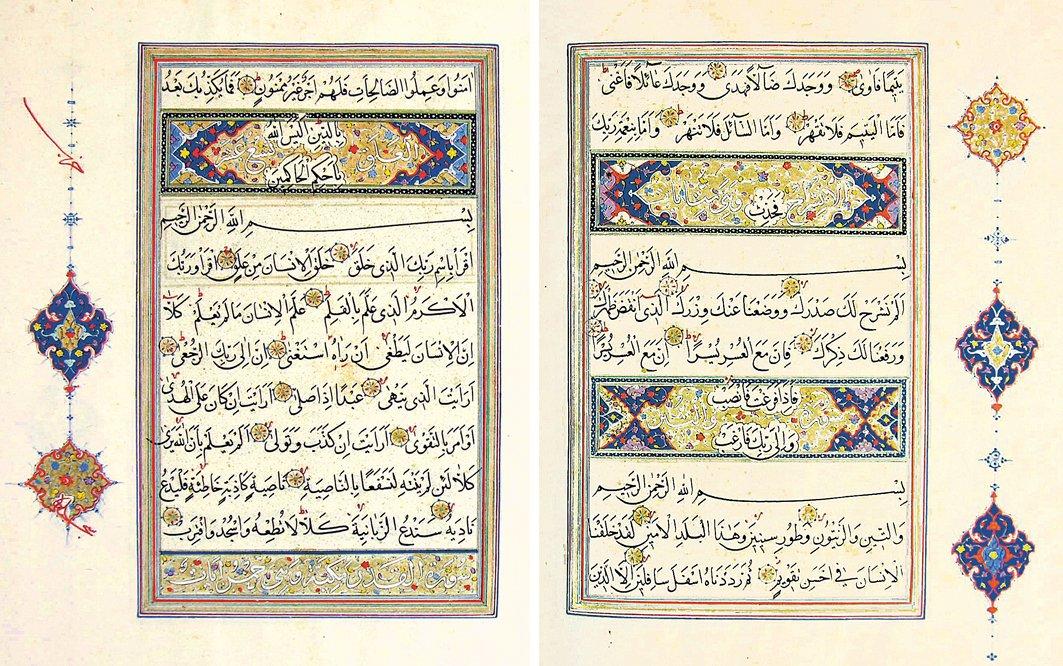 يَتِيمًا فَاٰوٰى وَوَجَدَكَ ضَالًّا فَهَدٰى وَوَجَدَكَ عَائِلًا فَاَغْنٰى
فَاَمَّا الْيَتِيمَ فَلَا تَقْهَرْ وَاَمَّا السَّائِلَ فَلَا تَنْهَرْ وَاَمَّا بِنِعْمَةِ رَبِّكَ
فَحَدِّثْ
بِسْمِ اللّٰهِ الرَّحْمٰنِ الرَّحِيمِ
اَلَمْ نَشْرَحْ لَكَ صَدْرَكَ وَوَضَعْنَا عَنْكَ وِزْرَكَ الَّذِى اَنْقَضَ ظَهْرَكَ
وَرَفَعْنَا لَكَ ذِكْرَكَ فَاِنَّ مَعَ الْعُسْرِ يُسْرًا اِنَّ مَعَ الْعُسْرِ يُسْرًا
فَاِذَا فَرَغْتَ فَانْصَبْ
وَاِلٰى رَبِّكَ فَارْغَبْ
بِسْمِ اللّٰهِ الرَّحْمٰنِ الرَّحِيمِ
وَالتِّينِ وَالزَّيْتُونِ وَطُورِ سِينِينَ وَهٰذَا الْبَلَدِ الْاَمِينِ لَقَدْ خَلَقْنَا
الْاِنْسَانَ فِى اَحْسَنِ تَقْوِيمٍ ثُمَّ رَدَدْنَاهُ اَسْفَلَ سَافِلِينَ اِلَّا الَّذِينَ
اٰمَنُوا وَعَمِلُوا الصَّالِحَاتِ فَلَهُمْ اَجْرٌ غَيْرُ مَمْنُونٍ فَمَا يُكَذِّبُكَ بَعْدُ
بِالدِّينِ اَلَيْسَ اللّٰهُ
بِاَحْكَمِ الْحَاكِمِينَ
بِسْمِ اللّٰهِ الرَّحْمٰنِ الرَّحِيمِ
اِقْرَاْ بِاسْمِ رَبِّكَ الَّذِى خَلَقَ خَلَقَ الْاِنْسَانَ مِنْ عَلَقٍ اِقْرَاْ وَرَبُّكَ
الْاَكْرَمُ الَّذِى عَلَّمَ بِالْقَلَمِ عَلَّمَ الْاِنْسَانَ مَا لَمْ يَعْلَمْ كَلَّا
اِنَّ الْاِنْسَانَ لَيَطْغٰى اَنْ رَاٰهُ اسْتَغْنٰى اِنَّ اِلٰى رَبِّكَ الرُّجْعٰى
اَرَاَيْتَ الَّذِى يَنْهٰى عَبْدًا اِذَا صَلّٰى اَرَاَيْتَ اِنْ كَانَ عَلَى الْهُدٰى
اَوْ اَمَرَ بِالتَّقْوٰى اَرَاَيْتَ اِنْ كَذَّبَ وَتَوَلّٰى اَلَمْ يَعْلَمْ بِاَنَّ اللّٰهَ يَرٰى
كَلَّا لَئِنْ لَمْ يَنْتَهِ لَنَسْفَعًا بِالنَّاصِيَةِ نَاصِيَةٍ كَاذِبَةٍ خَاطِئَةٍ فَلْيَدْعُ
نَادِيَهُ سَنَدْعُ الزَّبَانِيَةَ كَلَّا لَا تُطِعْهُ وَاسْجُدْ وَاقْتَرِبْ